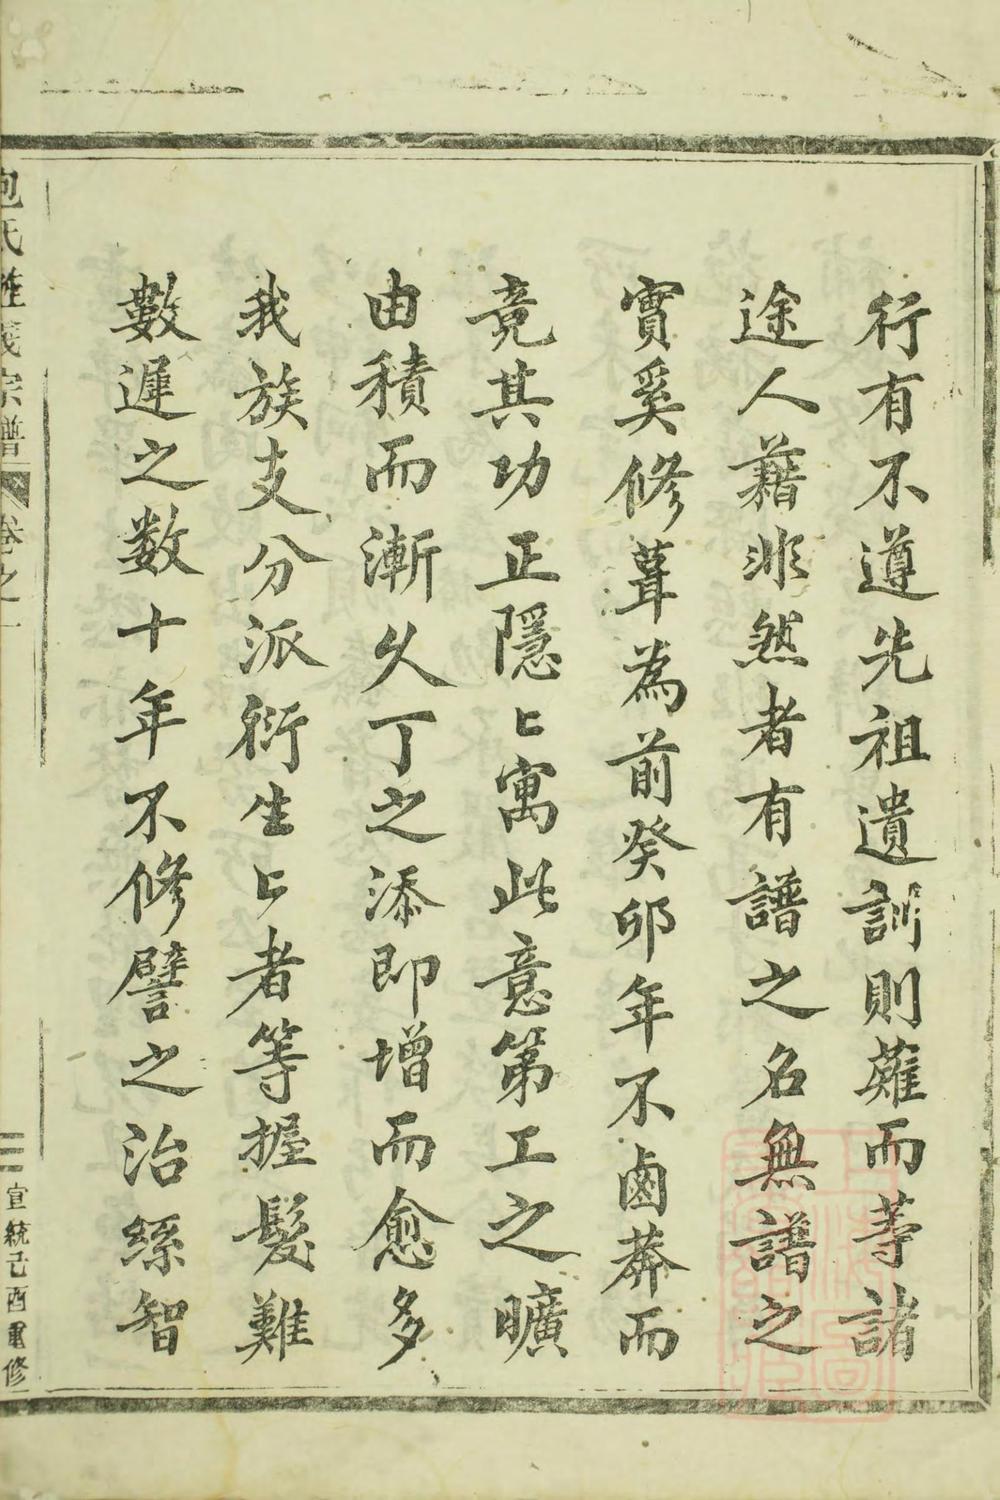 行有不遵先祖遺訓則薙而等諸
途人藉非然者有譜之名無譜之
實奚修葺為前癸卯年不鹵莽而
竟其功正隱匕寓此意第工之曠
由積而漸久丁之添即增而愈多
我族支分派衍生匕者等握髮難
數遲之数十年不修譬之治絲智
氏
宗譜
卷之一
宣統己酉重修